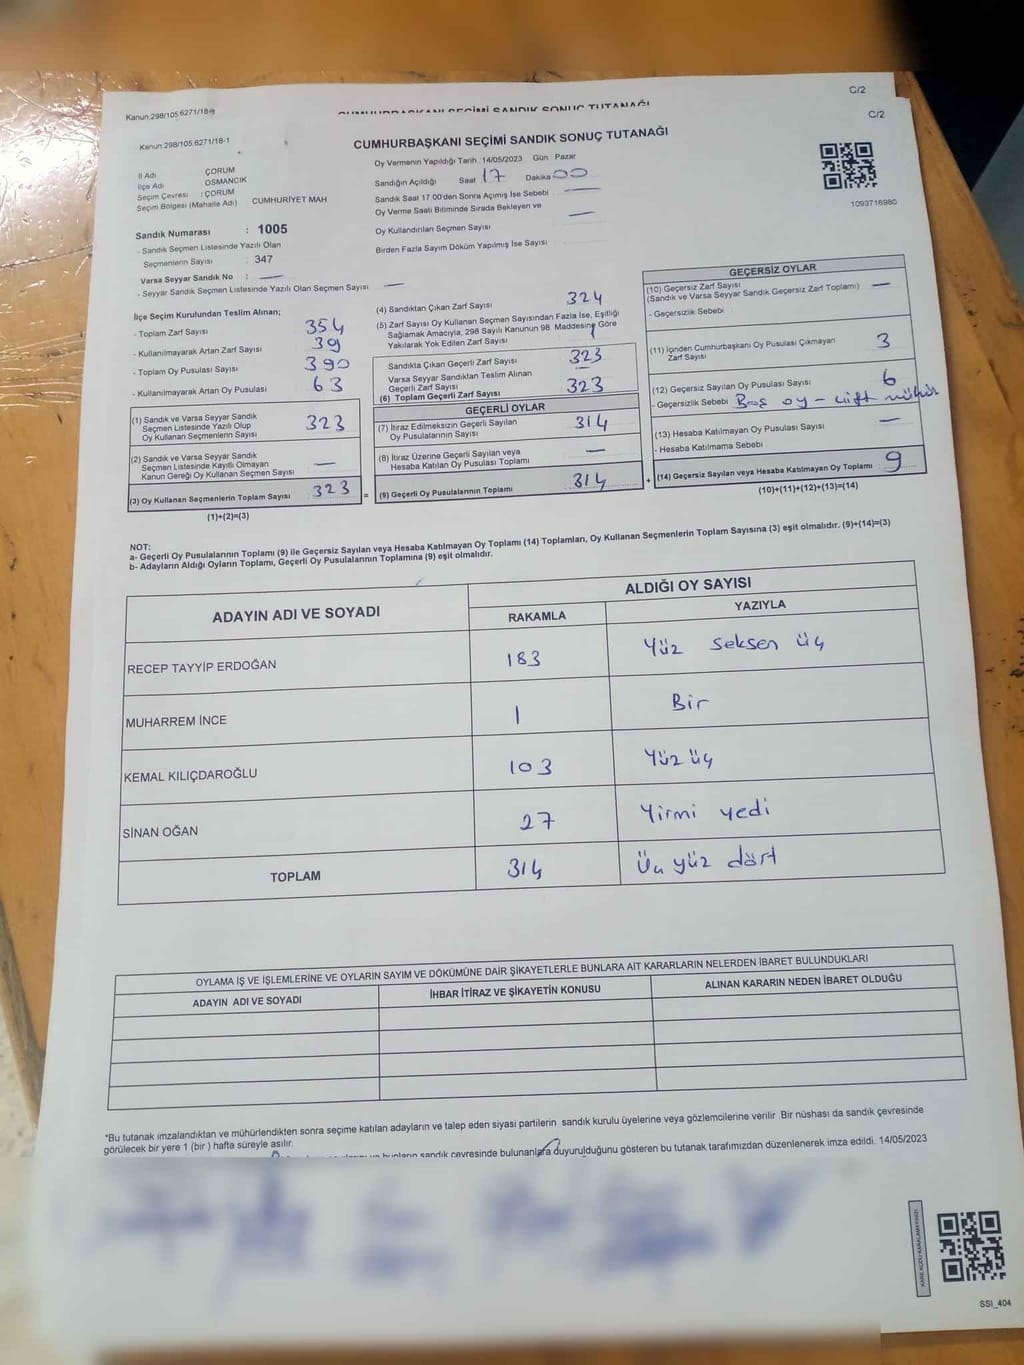 Kanun.298/105,6271/18-
CUMHURBAŞKANI SEÇİMİ SANDIK SONUÇ TUTANAĞI
C/2
Kanun.298/105,6271/18-1
CUMHURBAŞKANI SEÇİMİ SANDIK SONUÇ TUTANAĞI
C/2
İl Adı : ÇORUM
İlçe Adı OSMANCIK
Seçim Çevresi : ÇORUM
Seçim Bölgesi (Mahalle Adı) CUMHURİYET MAH
Oy Vermenin Yapıldığı Tarih :14/05/2023 Gün : Pazar
Sandığın Açıldığı Saat 17 Dakika 00
Sandık Saat 17:00'den Sonra Açımış İse Sebebi —
Oy Verme Saati Bitiminde Sırada Bekleyen ve
Oy Kullandırılan Seçmen Sayısı —
Birden Fazla Sayım Döküm Yapılmış İse Sayısı
1093716980
Sandık Numarası : 1005
- Sandık Seçmen Listesinde Yazılı Olan
Seçmenlerin Sayısı : 347
Varsa Seyyar Sandık No : —
- Seyyar Sandık Seçmen Listesinde Yazılı Olan Seçmen Sayısı —
İlçe Seçim Kurulundan Teslim Alınan;
- Toplam Zarf Sayısı 354
- Kullanılmayarak Artan Zarf Sayısı 39
- Toplam Oy Pusulası Sayısı 390
- Kullanılmayarak Artan Oy Pusulası 63
(1) Sandık ve Varsa Seyyar Sandık
Seçmen Listesinde Yazılı Olup
Oy Kullanan Seçmenlerin Sayısı 323
(2) Sandık ve Varsa Seyyar Sandık
Seçmen Listesinde Kayıtlı Olmayan
Kanun Gereği Oy Kullanan Seçmen Sayısı —
(3) Oy Kullanan Seçmenlerin Toplam Sayısı 323 =
(1)+(2)=(3)
(4) Sandıktan Çıkan Zarf Sayısı 324
(5) Zarf Sayısı Oy Kullanan Seçmen Sayısından Fazla İse, Eşitliği
Sağlamak Amacıyla, 298 Sayılı Kanunun 98. Maddesine Göre
Yakılarak Yok Edilen Zarf Sayısı 1
Sandıkta Çıkan Geçerli Zarf Sayısı 323
Varsa Seyyar Sandıktan Teslim Alınan
Geçerli Zarf Sayısı —
(6) Toplam Geçerli Zarf Sayısı 323
GEÇERLİ OYLAR
(7) İtiraz Edilmeksizin Geçerli Sayılan
Oy Pusulalarının Sayısı 314
(8) İtiraz Üzerine Geçerli Sayılan veya
Hesaba Katılan Oy Pusulası Toplamı —
(9) Geçerli Oy Pusulalarının Toplamı 314 +
GEÇERSİZ OYLAR
(10) Geçersiz Zarf Sayısı
(Sandık ve Varsa Seyyar Sandık Geçersiz Zarf Toplamı) —
- Geçersizlik Sebebi
(11) İçinden Cumhurbaşkanı Oy Pusulası Çıkmayan
Zarf Sayısı 3
(12) Geçersiz Sayılan Oy Pusulası Sayısı 6
- Geçersizlik Sebebi Boş oy - çift mühür
(13) Hesaba Katılmayan Oy Pusulası Sayısı —
- Hesaba Katılmama Sebebi
(14) Geçersiz Sayılan veya Hesaba Katılmayan Oy Toplamı 9
(10)+(11)+(12)+(13)=(14)
NOT:
a- Geçerli Oy Pusulalarının Toplamı (9) ile Geçersiz Sayılan veya Hesaba Katılmayan Oy Toplamı (14) Toplamları, Oy Kullanan Seçmenlerin Toplam Sayısına (3) eşit olmalıdır. (9)+(14)=(3)
b- Adayların Aldığı Oyların Toplamı, Geçerli Oy Pusulalarının Toplamına (9) eşit olmalıdır.
ADAYIN ADI VE SOYADI
ALDIĞI OY SAYISI
RAKAMLA YAZIYLA
RECEP TAYYİP ERDOĞAN 183 Yüz seksen üç
MUHARREM İNCE 1 Bir
KEMAL KILIÇDAROĞLU 103 Yüz üç
SİNAN OĞAN 27 Yirmi yedi
TOPLAM 314 yüz dört
OYLAMA İŞ VE İŞLEMLERİNE VE OYLARIN SAYIM VE DÖKÜMÜNE DAİR ŞİKAYETLERLE BUNLARA AİT KARARLARIN NELERDEN İBARET BULUNDUKLARI
ADAYIN ADI VE SOYADI İHBAR İTİRAZ VE ŞİKAYETİN KONUSU ALINAN KARARIN NEDEN İBARET OLDUĞU
*Bu tutanak imzalandıktan ve mühürlendikten sonra seçime katılan adayların ve talep eden siyasi partilerin sandık kurulu üyelerine veya gözlemcilerine verilir .Bir nüshası da sandık çevresinde
görülecek bir yere 1 (bir ) hafta süreyle asılır.
bunların sandık çevresinde bulunanlara duyurulduğunu gösteren bu tutanak tarafımızdan düzenlenerek imza edildi. 14/05/2023
SSI_404